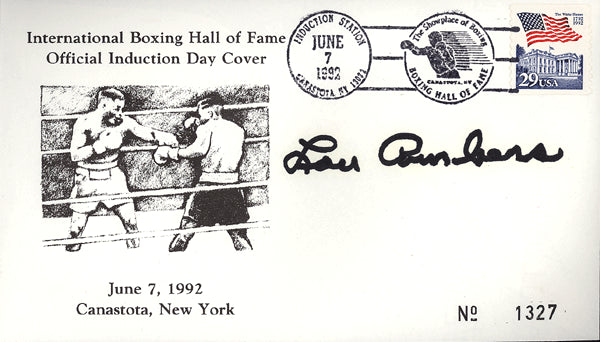 International Boxing Hall of Fame
Official Induction Day Cover
INDUCTION STATION
JUNE
7
1992
CANASTOTA NY 13032
The Showplace of Boxing
CANASTOTA, NY
BOXING HALL OF FAME
The White House
1792 1992
29 USA
Lou Ambers
June 7, 1992
Canastota, New York
No 1327